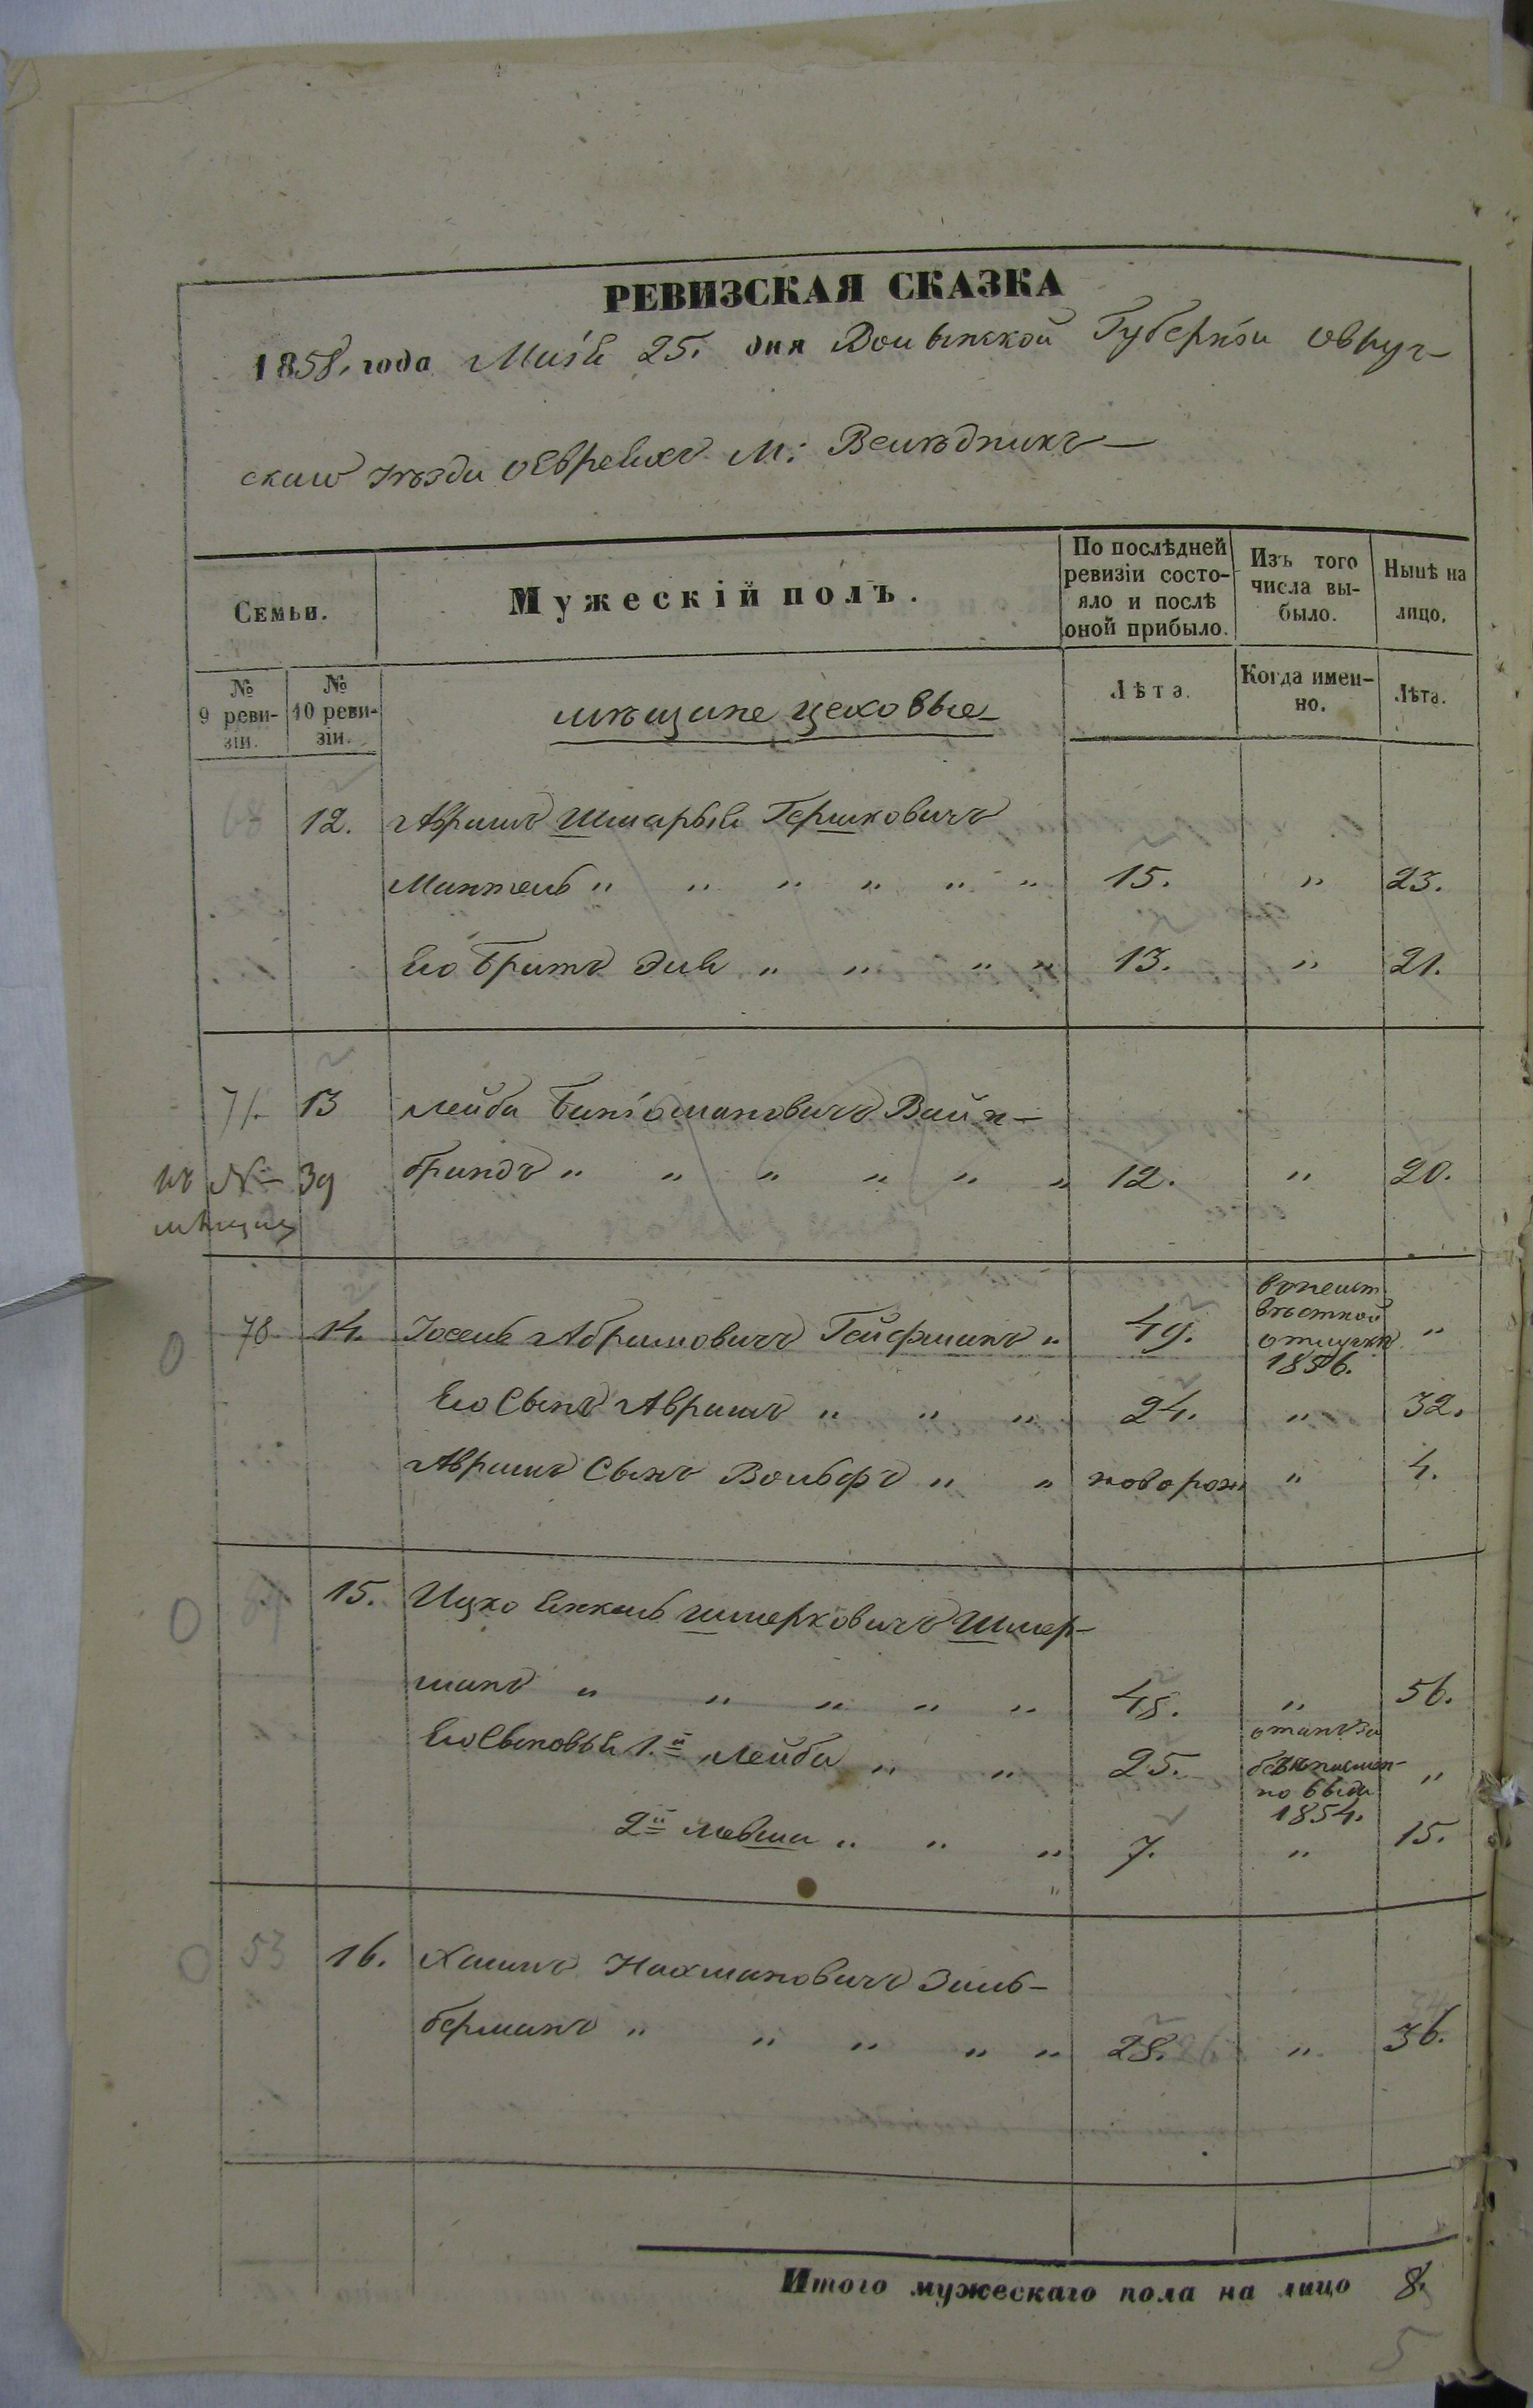 РЕВИЗСКАЯ СКАЗКА
1858. года Маія 25. дня Волынской Губерніи Овруч-
скаго уѣзда о Евреяхъ М: Велѣдникъ
Семьи.
Мужескій полъ.
По послѣдней ревизіи состо-
яло и послѣ оной прибыло.
Изъ того числа вы-
было.
Нынѣ на лицо.
№ 9 реви-
зіи.
№ 10 реви-
зіи.
мѣщане цеховые
Лѣта.
Когда имен-
но.
Лѣта.
68 12. Аврамъ Шмарья Гершковичъ
Мантель " " " " " " 15. " 23.
Его Братъ Эля " " " " 13. " 21.
71. 13 Лейба Биніоминовичъ Вайн-
№ 39 брандъ " " " " " " 12. " 20.
мѣщан
78 14. Іосель Абрамовичъ Гойфманъ " 49. отлучкѣ 1856. "
Его Сынъ Аврамъ " " " 24. " 32.
Аврама Сынъ Вольфъ " " новорож " 4.
15. Ицко Янкель Шмерковичъ Шмер-
манъ " " " " " 48. " 56.
Его Сыновья 1.й Лейба " " 25. 1854. "
2й " " " 7. " 15.
53 16. Хаимъ Нахмановичъ Зиль-
берманъ " " " " " 28. " 36.
Итого мужескаго пола на лицо 8.
5